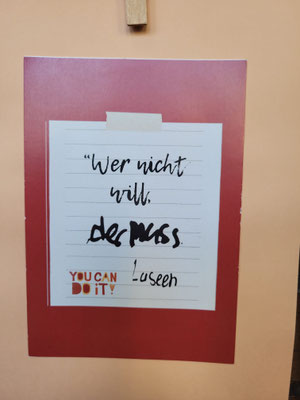 "Wer nicht
will,
der muss
Laseen
YOU CAN
DO iT!